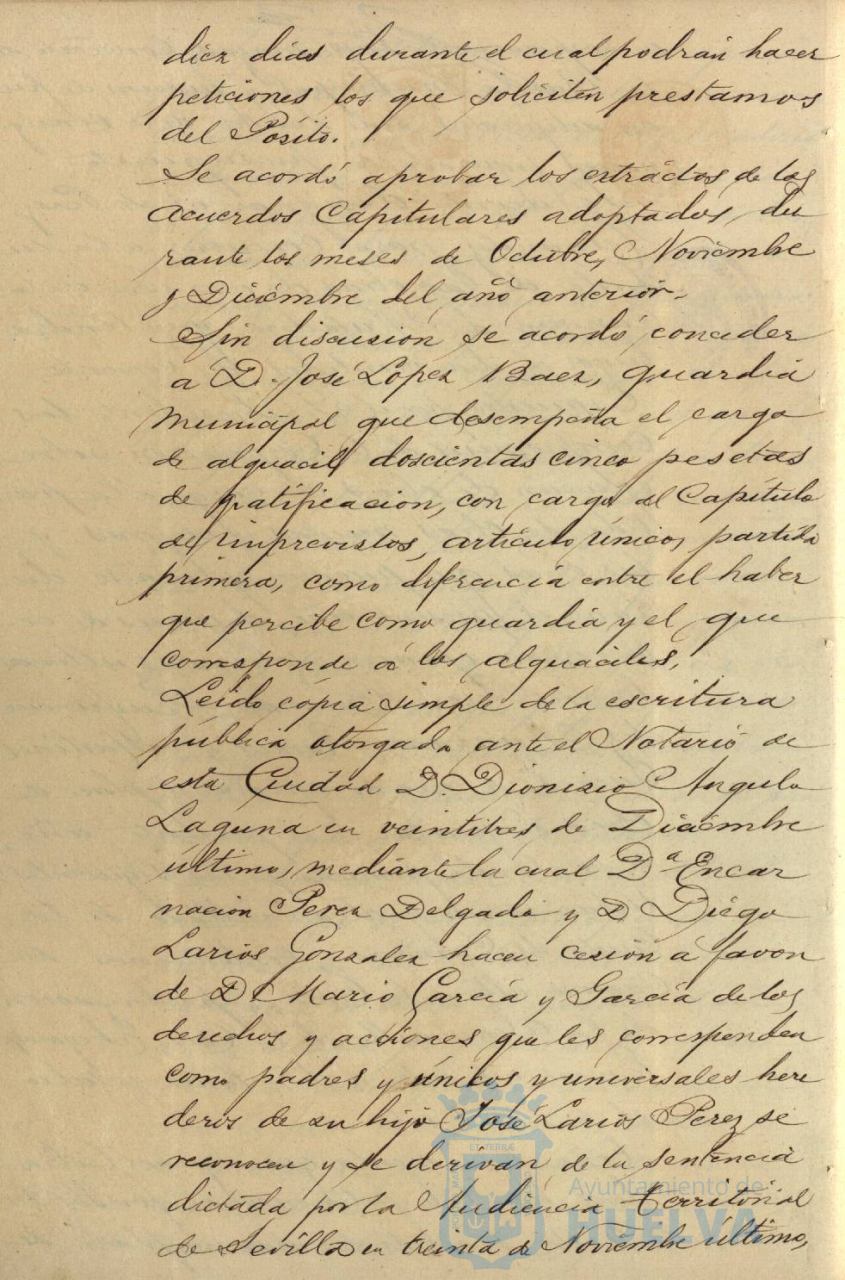 diez dias durante el cual podrán hacer
peticiones los que soliciten prestamos
del Pósito.
Se acordó aprobar los estractos de los
acuerdos Capitulares adoptados, du
rante los meses de Octubre, Noviembre
y Diciembre del año anterior.
Sin discusión se acordó conceder
á D. José Lopez Baez, guardia
municipal que desempeña el cargo
de alguacil doscientas cinco pesetas
de gratificacion, con cargo al Capítulo
de imprevistos, artículo único, partida
primera, como diferencia entre el haber
que percibe como guardia y el que
corresponde á los alguaciles.
Leido copia simple de la escritura
pública otorgada ante el Notario de
esta Ciudad D. Dionisio Angulo
Laguna en veintitres de Diciembre
último, mediante la cual Dª Encar
nacion Perez Delgado y D Diego
Larios Gonzalez hacen cesión á favor
de D. Mario García y García de los
derechos y acciones que les corresponden
como padres y únicos y universales here
deros de su hijo José Larios Perez se
reconocen y se derivan de la sentencia
dictada por la Audiencia Territorial
de Sevilla en treinta de Noviembre último,
Ayuntamiento de
HUELVA